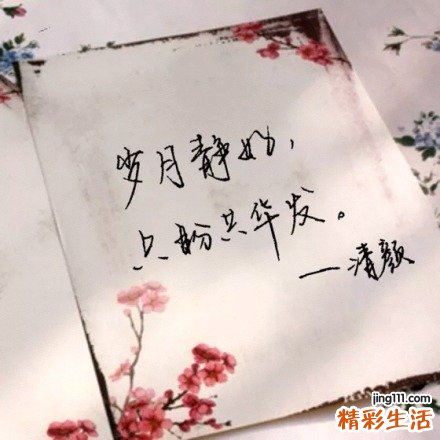 岁月静好，
只盼共华发。
—清颜
jing111.com
精彩生活